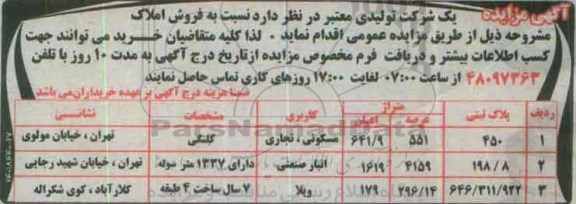 آگهی مزایده
یک شرکت تولیدی معتبر در نظر دارد نسبت به فروش املاک
مشروحه ذیل از طریق مزایده عمومی اقدام نماید . لذا کلیه متقاضیان خرید می توانند جهت
کسب اطلاعات بیشتر و دریافت فرم مخصوص مزایده ازتاریخ درج آگهی به مدت ۱۰ روز با تلفن
۴۸۰۹۷۳۶۳ از ساعت ۰۷:۰۰ لغایت ۱۷:۰۰ روزهای کاری تماس حاصل نمایند
ضمنا هزینه درج آگهی بر عهده خریداران می باشد
ردیف پلاک ثبتی متراژ عرصه اعیان کاربری مشخصات نشانی
۱ ۴۵۰ ۵۵۱ ۶۴۱/۹ مسکونی ، تجاری کلنگی تهران ، خیابان مولوی
۲ ۱۹۸/۸ ۴۱۵۹ ۱۶۱۹ انبار صنعتی دارای ۱۳۳۷ متر سوله تهران ، خیابان شهید رجایی
۳ ۶۴۶/۳۱۱/۹۲۲ ۲۹۶/۱۴ ۱۷۹ ویلا ۷ سال ساخت ۴ طبقه کلارآباد ، کوی شکراله
ParsNamadData